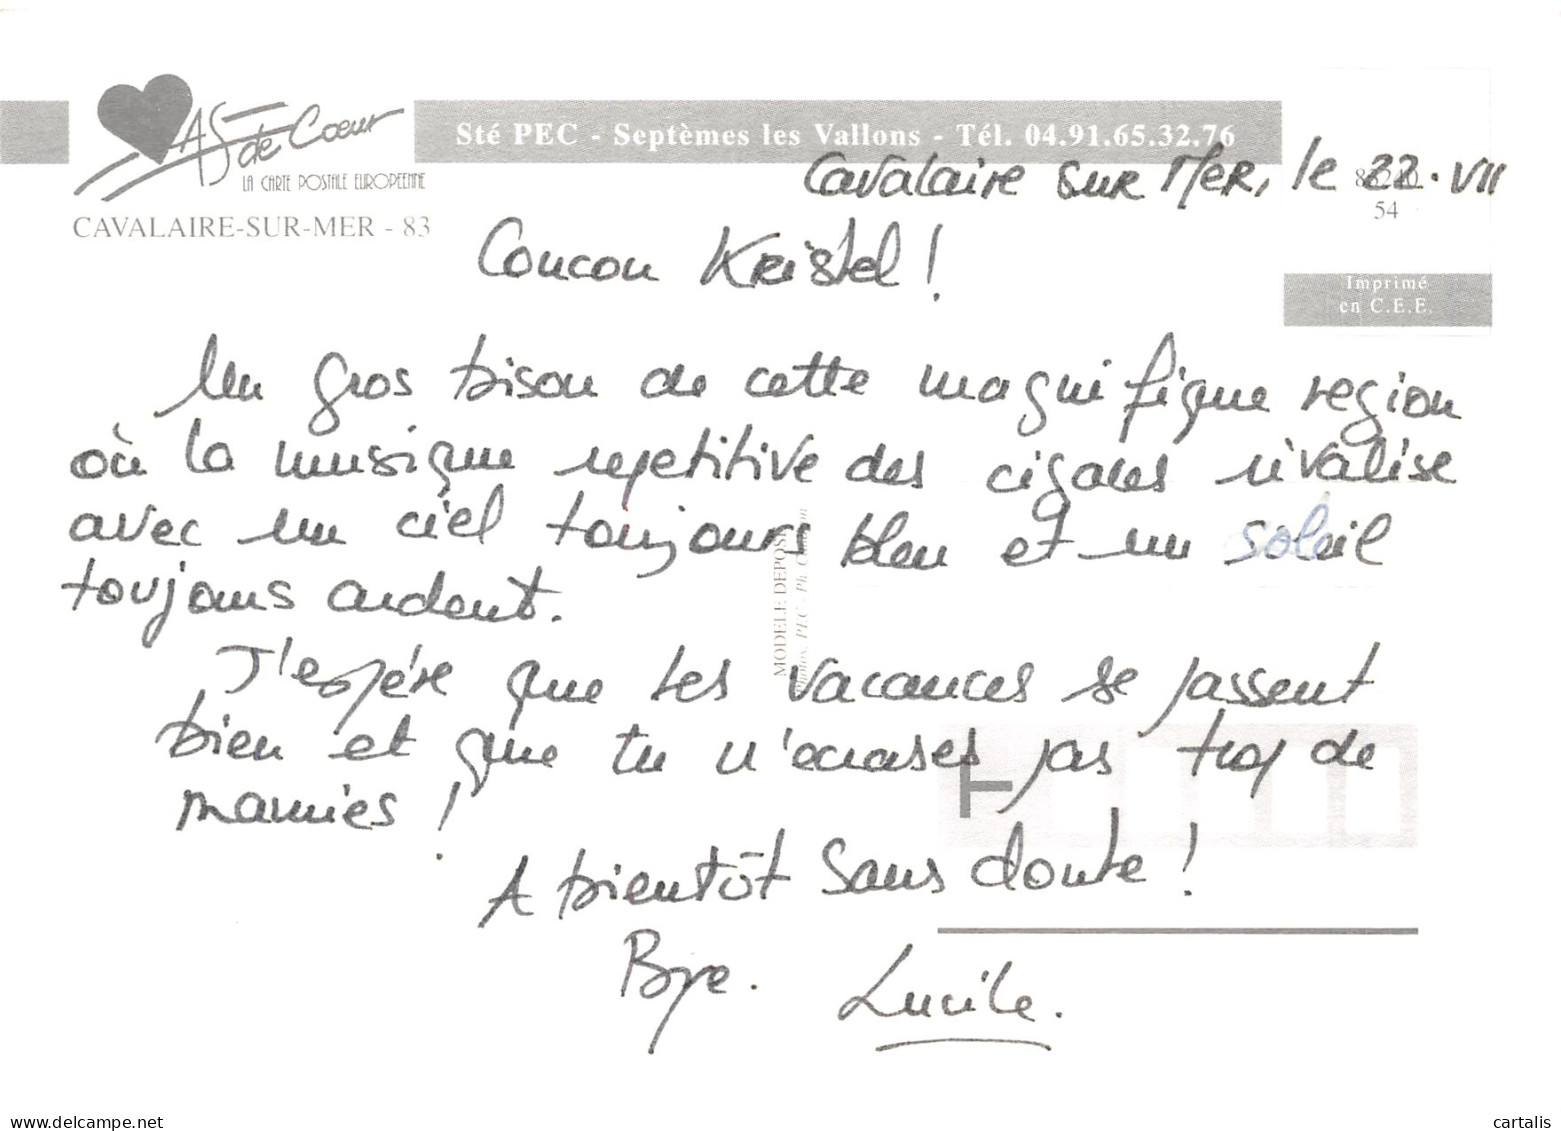 AS de Cœur
LA CARTE POSTALE EUROPEENNE
CAVALAIRE-SUR-MER - 83
Sté PEC - Septèmes les Vallons - Tél. 04.91.65.32.76
54
Imprimé
en C.E.E.
Cavalaire sur Mer, le 22.VII
Coucou Kristel !
Un gros bisou de cette magnifique region
où la musique repetitive des cigales rivalise
avec un ciel toujours bleu et un soleil
toujours ardent.
J'espère que tes vacances se passent
bien et que tu n'écrases pas trop de
mamies !
A bientôt sans doute !
Bye. Lucile.
MODELE DEPOSE
Photos. PEC - Ph.
delcampe.net
cartalis